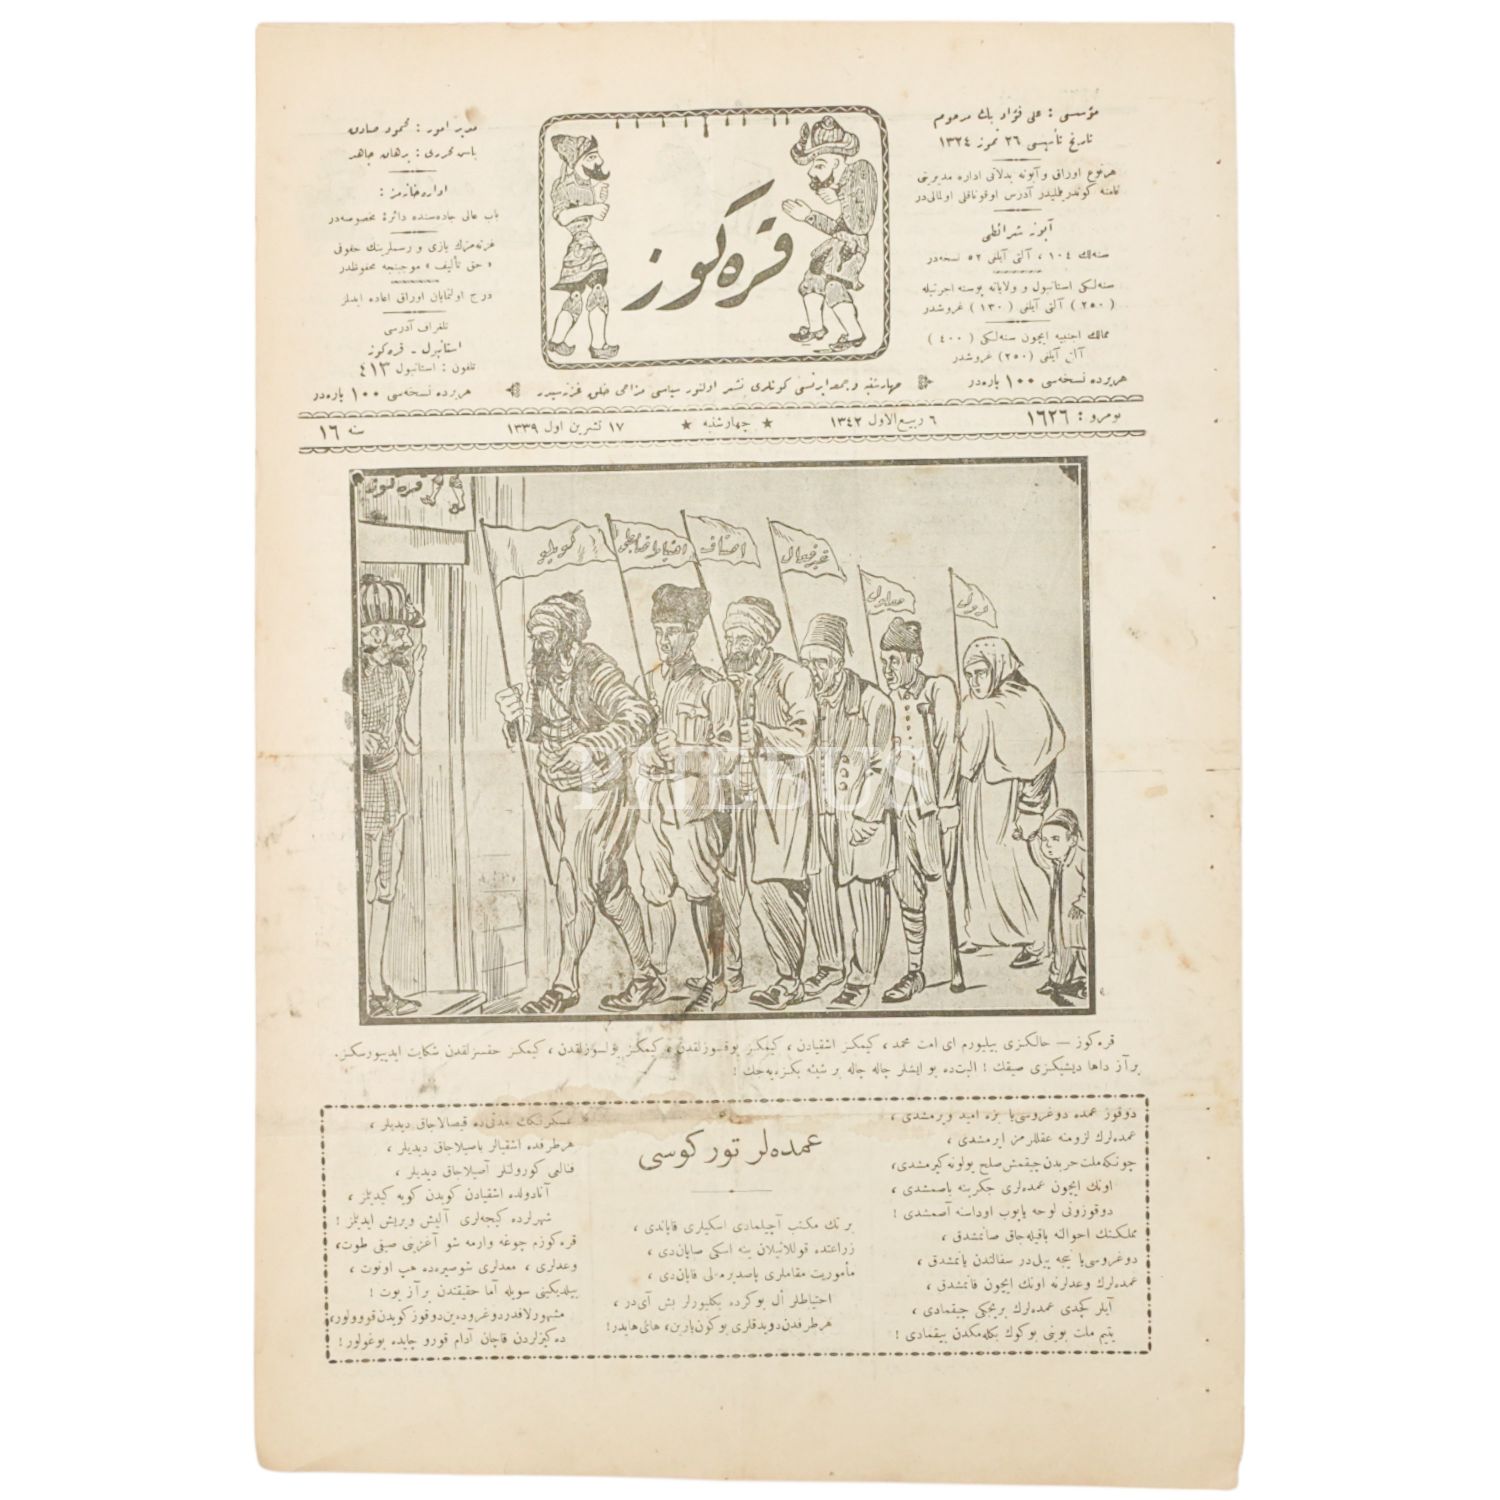 مؤسسی : علی فؤاد بك مرحوم
تاریخ تأسیسی ٢٦ تموز ١٣٢٤
هر نوع اوراق و آبونه بدلاتی اداره مدیریتی
نامنه كوندرملیدر آدرس اوقوناقلی اولمالی در
آبونه شرائطی
سنه لك ١٠٤ ، آلتی آیلغی ٥٢ نسخه در
سنه لكی استانبول و ولایاته پوسته اجرتیله
( ٢٥٠ ) آلتی آیلغی ( ١٣٠ ) غروشدر
ممالك اجنبیه ایچون سنه لكی ( ٤٠٠ )
آلتی آیلغی (٢٥٠) غروشدر
هر یرده نسخه سی ١٠٠ پاره در
قره كوز
مدیر امور : محمود صادق
باش محرری : برهان جاهد
اداره خانه مز :
باب عالی جاده سنده دائره مخصوصه در
غزته مزك یازی و رسملرینك حقوقی
« حق تألیف » موجبنجه محفوظدر
درج اولنمایان اوراق اعاده ایدلمز
تلغراف آدرسی
استانبول ـ قره كوز
تلفون : استانبول ٤١٣
هر یرده نسخه سی ١٠٠ پاره در
چهارشنبه و جمعه ایرتسی كونلری نشر اولنور سیاسی مزاحی خلق غزته سیدر
نومرو : ١٦٢٦
٦ ربیع الاول ١٣٤٢
★ چهارشنبه ★
١٧ تشرین اول ١٣٣٩
سنه ١٦
قره كوز
كویلو
احتیاط ضابطی
اصناف
معلول
PHEBUS
قره كوز — حالكزی بیلیورم ای امت محمد ، كیمكز اشقیادن ، كیمكز یوقسوزلقدن ، كیمكز یولسوزلقدن ، كیمكز حقسزلقدن شكایت ایدییورسكز.
بر آز داها دیشكزی صیقك ! البت ده بو ایشلر چاله چاله بر شیئه بكزه یه جك !
عمده لر توركوسی
دوقوز عمده دوغروسی یا بزه امید ویرمشدی ،
عمده لرك لزومنه عقللرمز ایرمشدی ،
چونكه ملت حربدن چیقمش صلح یولونه كیرمشدی،
اونك ایچون عمده لری جكرینه باصمشدی ،
دوقوزونی لوحه یاپوب اوداسنه آصمشدی !
مملكتك احوالنه باقیله جاق صانمشدق ،
دوغروسی یا نیجه ییل در سفالتدن یانمشدق ،
عمده لرك وعدلرنه اونك ایچون قانمشدق ،
آیلر كچدی عمده لرك بریجكی چیقمادی ،
یتیم ملت بوینی بوكوك بكله مكدن بیقمادی !
بر تك مكتب آچیلمادی اسكیلری قاپاندی ،
زراعتده قوللانیلان ینه اسكی صاپان دی ،
مأموریت مقاملری
احتیاطلر آل بوكرده بكلیورلر بش آی در ،
هر طرفدن دویدقلری بوكون یارین، هائی هایدر!
عسكرلكك مدتی ده قیصالاجاق دیدیلر ،
هر طرفده اشقیالر باصیلاجاق دیدیلر ،
فنالغی كورولنلر آصیلاجاق دیدیلر ،
آناطولده اشقیادن كویدن كویه كیدیلمز ،
شهرلرده كیجه لری آلیش ویریش ایدیلمز !
قره كوزم چوغه وارمه شو آغزینی صیقی طوت،
وعدلری ، معدلری شو صیره ده هپ اونوت ،
بیلدیكینی سویله اما حقیقتدن بر آز یوت !
مشهور لافدر دوغرو دیه ین دوقوز كویدن قوولور،
ده كیزلردن قاچان آدام قورو چایده بوغولور!